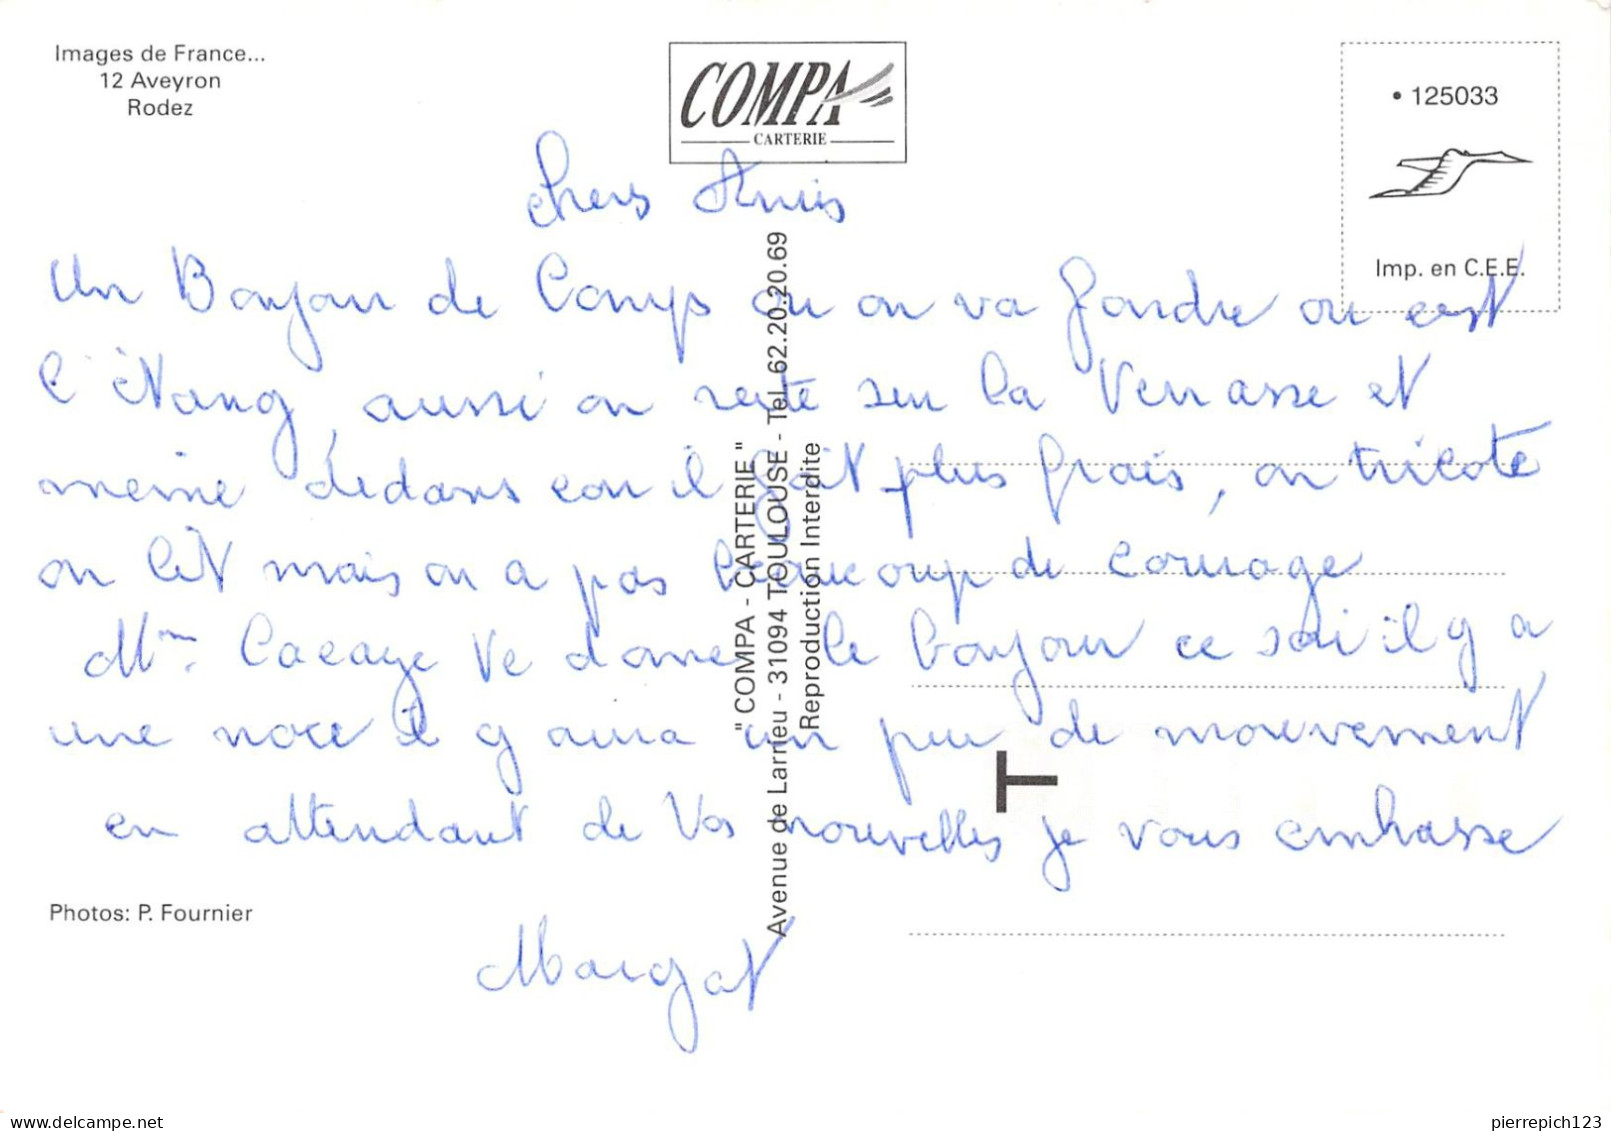 Images de France...
12 Aveyron
Rodez
COMPA
CARTERIE
• 125033
Imp. en C.E.E.
Chers Amis
Un Bonjour de Camps ou on va fondre ou est
l'étang, aussi on reste sur la Terrasse et
meme dedans car il fait plus frais, on tricote
on lit mais on a pas beaucoup de courage
Mme. Te donnes le bonjour ce soir il y a
une noce il y aura un peu de mouvement
en attendant de Vos nouvelles je vous embrasse
Margat
"COMPA - CARTERIE"
Avenue de Larrieu - 31094 TOULOUSE - Tel. 62.20.20.69
Reproduction Interdite
T
Photos: P. Fournier
www.delcampe.net
pierrepich123